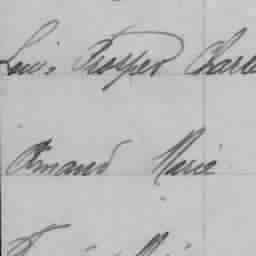 Louis Prosper Charle
Armand Marie